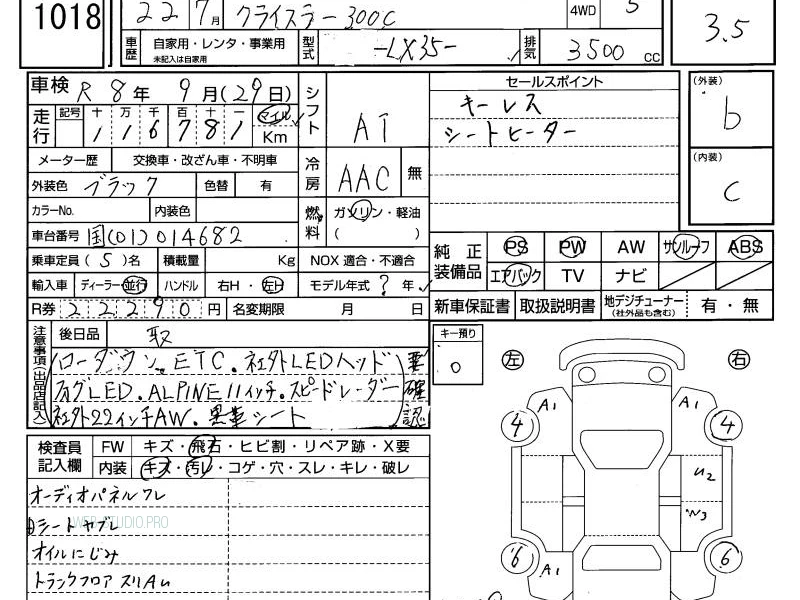 1018 22 7月 クライスラー300C 4WD 5 3.5
車歴 自家用・レンタ・事業用 未記入は自家用 型式 -LX35- 排気 3500 cc
車検 R 8年 9月(29日) シフト AT セールスポイント (外装) b
走行 記号 十 万 千 百 十 一 マイル キーレス
1 1 6 7 8 1 Km シートヒーター
メーター歴 交換車・改ざん車・不明車 冷房 AAC 無 (内装) C
外装色 ブラック 色替 有
カラーNo. 内装色 燃料 ガソリン・軽油
車台番号 国(01)014682 ( )
乗車定員(5)名 積載量 Kg NOX 適合・不適合 純正装備品 PS PW AW サンルーフ ABS
輸入車 ディーラー・並行 ハンドル 右H・左H モデル年式 ? 年 エアバック TV ナビ
R券 22290円 名変期限 月 日 新車保証書 取扱説明書 地デジチューナー (社外品も含む) 有・無
注意事項(出品店記入) 後日品 取 キー預り 0
ローダウン.ETC.社外LEDヘッド 要
フォグLED.ALPINE11インチ.スピードレーダー 確
社外22インチAW.黒革シート 認
左 右
A1 A1
4 4
検査員記入欄 FW キズ・飛石・ヒビ割・リペア跡・X要
内装 キズ・汚レ・コゲ・穴・スレ・キレ・破レ
U2
オーディオパネルワレ
W3
シートヤブレ
WEB-STUDIO.PRO
オイルにじみ
6 6
A1
トランクフロア スリAし